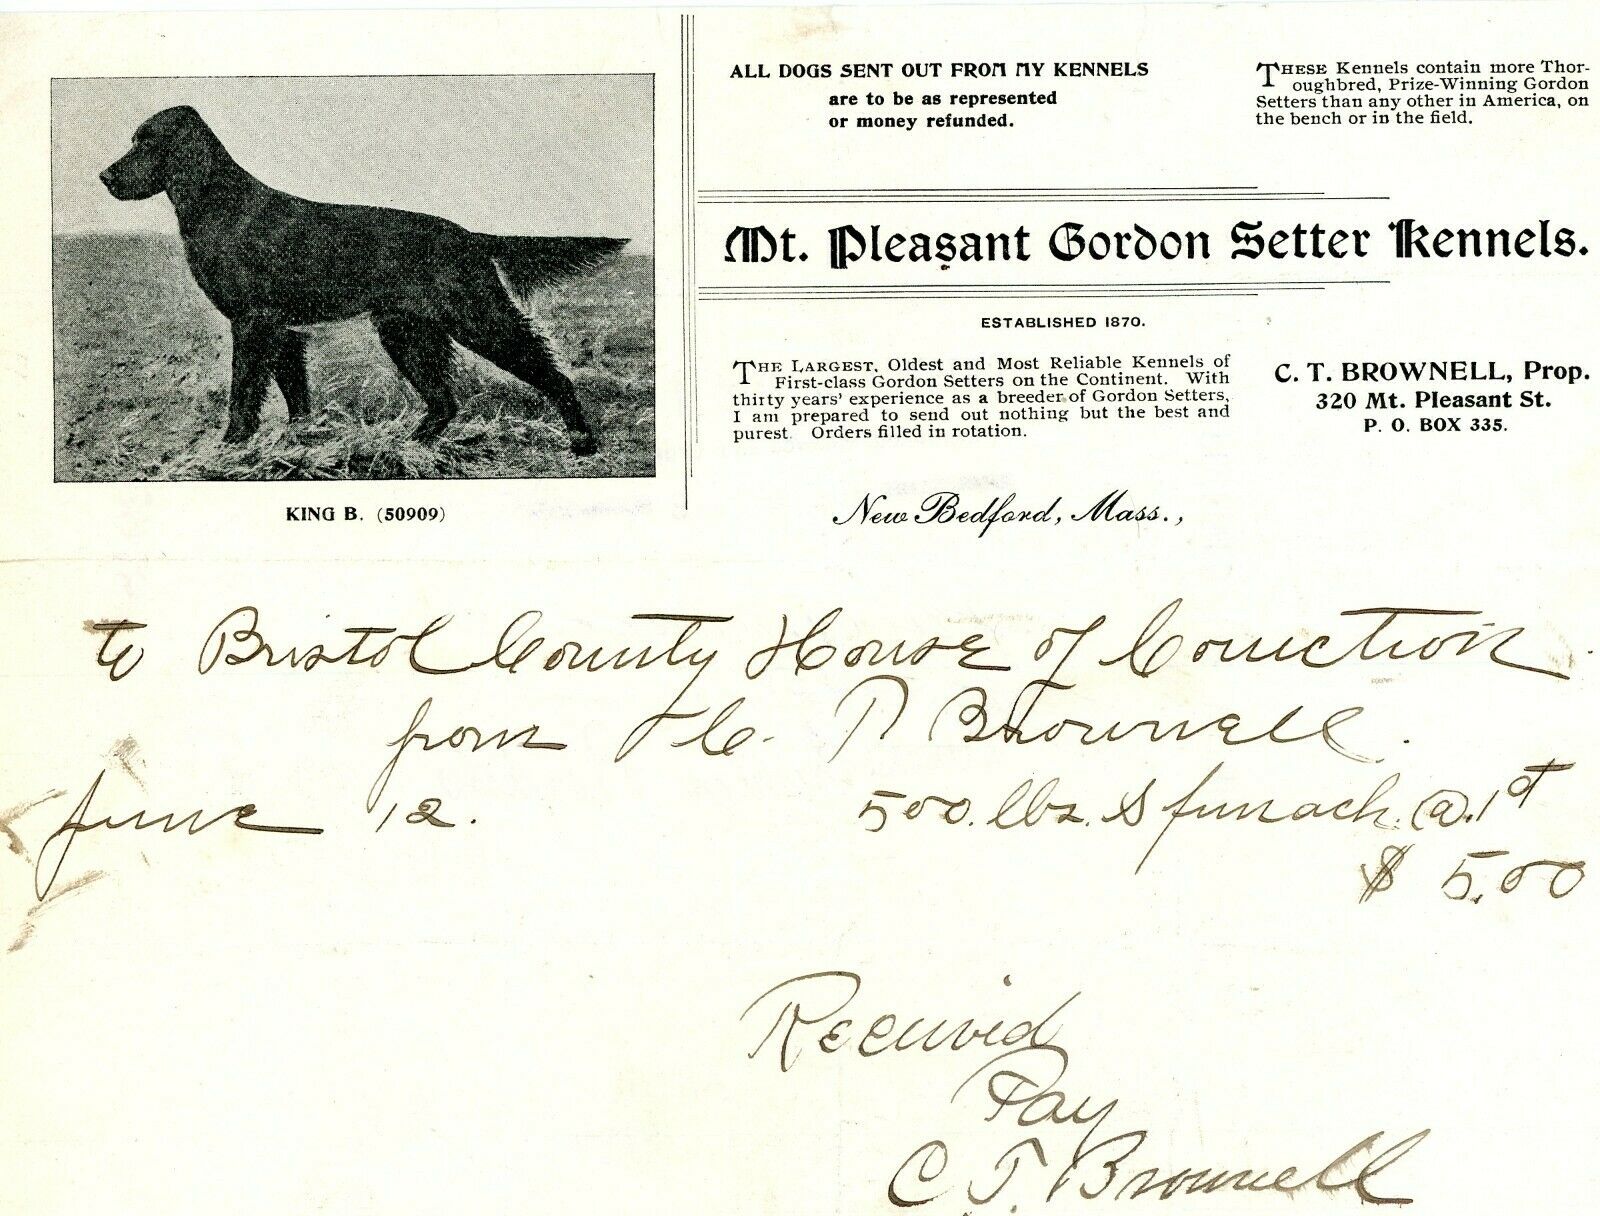 ALL DOGS SENT OUT FROM MY KENNELS
are to be as represented
or money refunded.
THESE Kennels contain more Thor-
oughbred, Prize-Winning Gordon
Setters than any other in America, on
the bench or in the field.
Mt. Pleasant Gordon Setter Kennels.
ESTABLISHED 1870.
THE LARGEST, Oldest and Most Reliable Kennels of
First-class Gordon Setters on the Continent. With
thirty years' experience as a breeder of Gordon Setters,
I am prepared to send out nothing but the best and
purest. Orders filled in rotation.
C. T. BROWNELL, Prop.
320 Mt. Pleasant St.
P. O. BOX 335.
KING B. (50909)
New Bedford, Mass.,
to Bristol County House of Correction
from C. T Brownell.
June 12. 500. lbs. Spinach. @.1ct
$ 5.00
Received
Pay
C T. Brownell